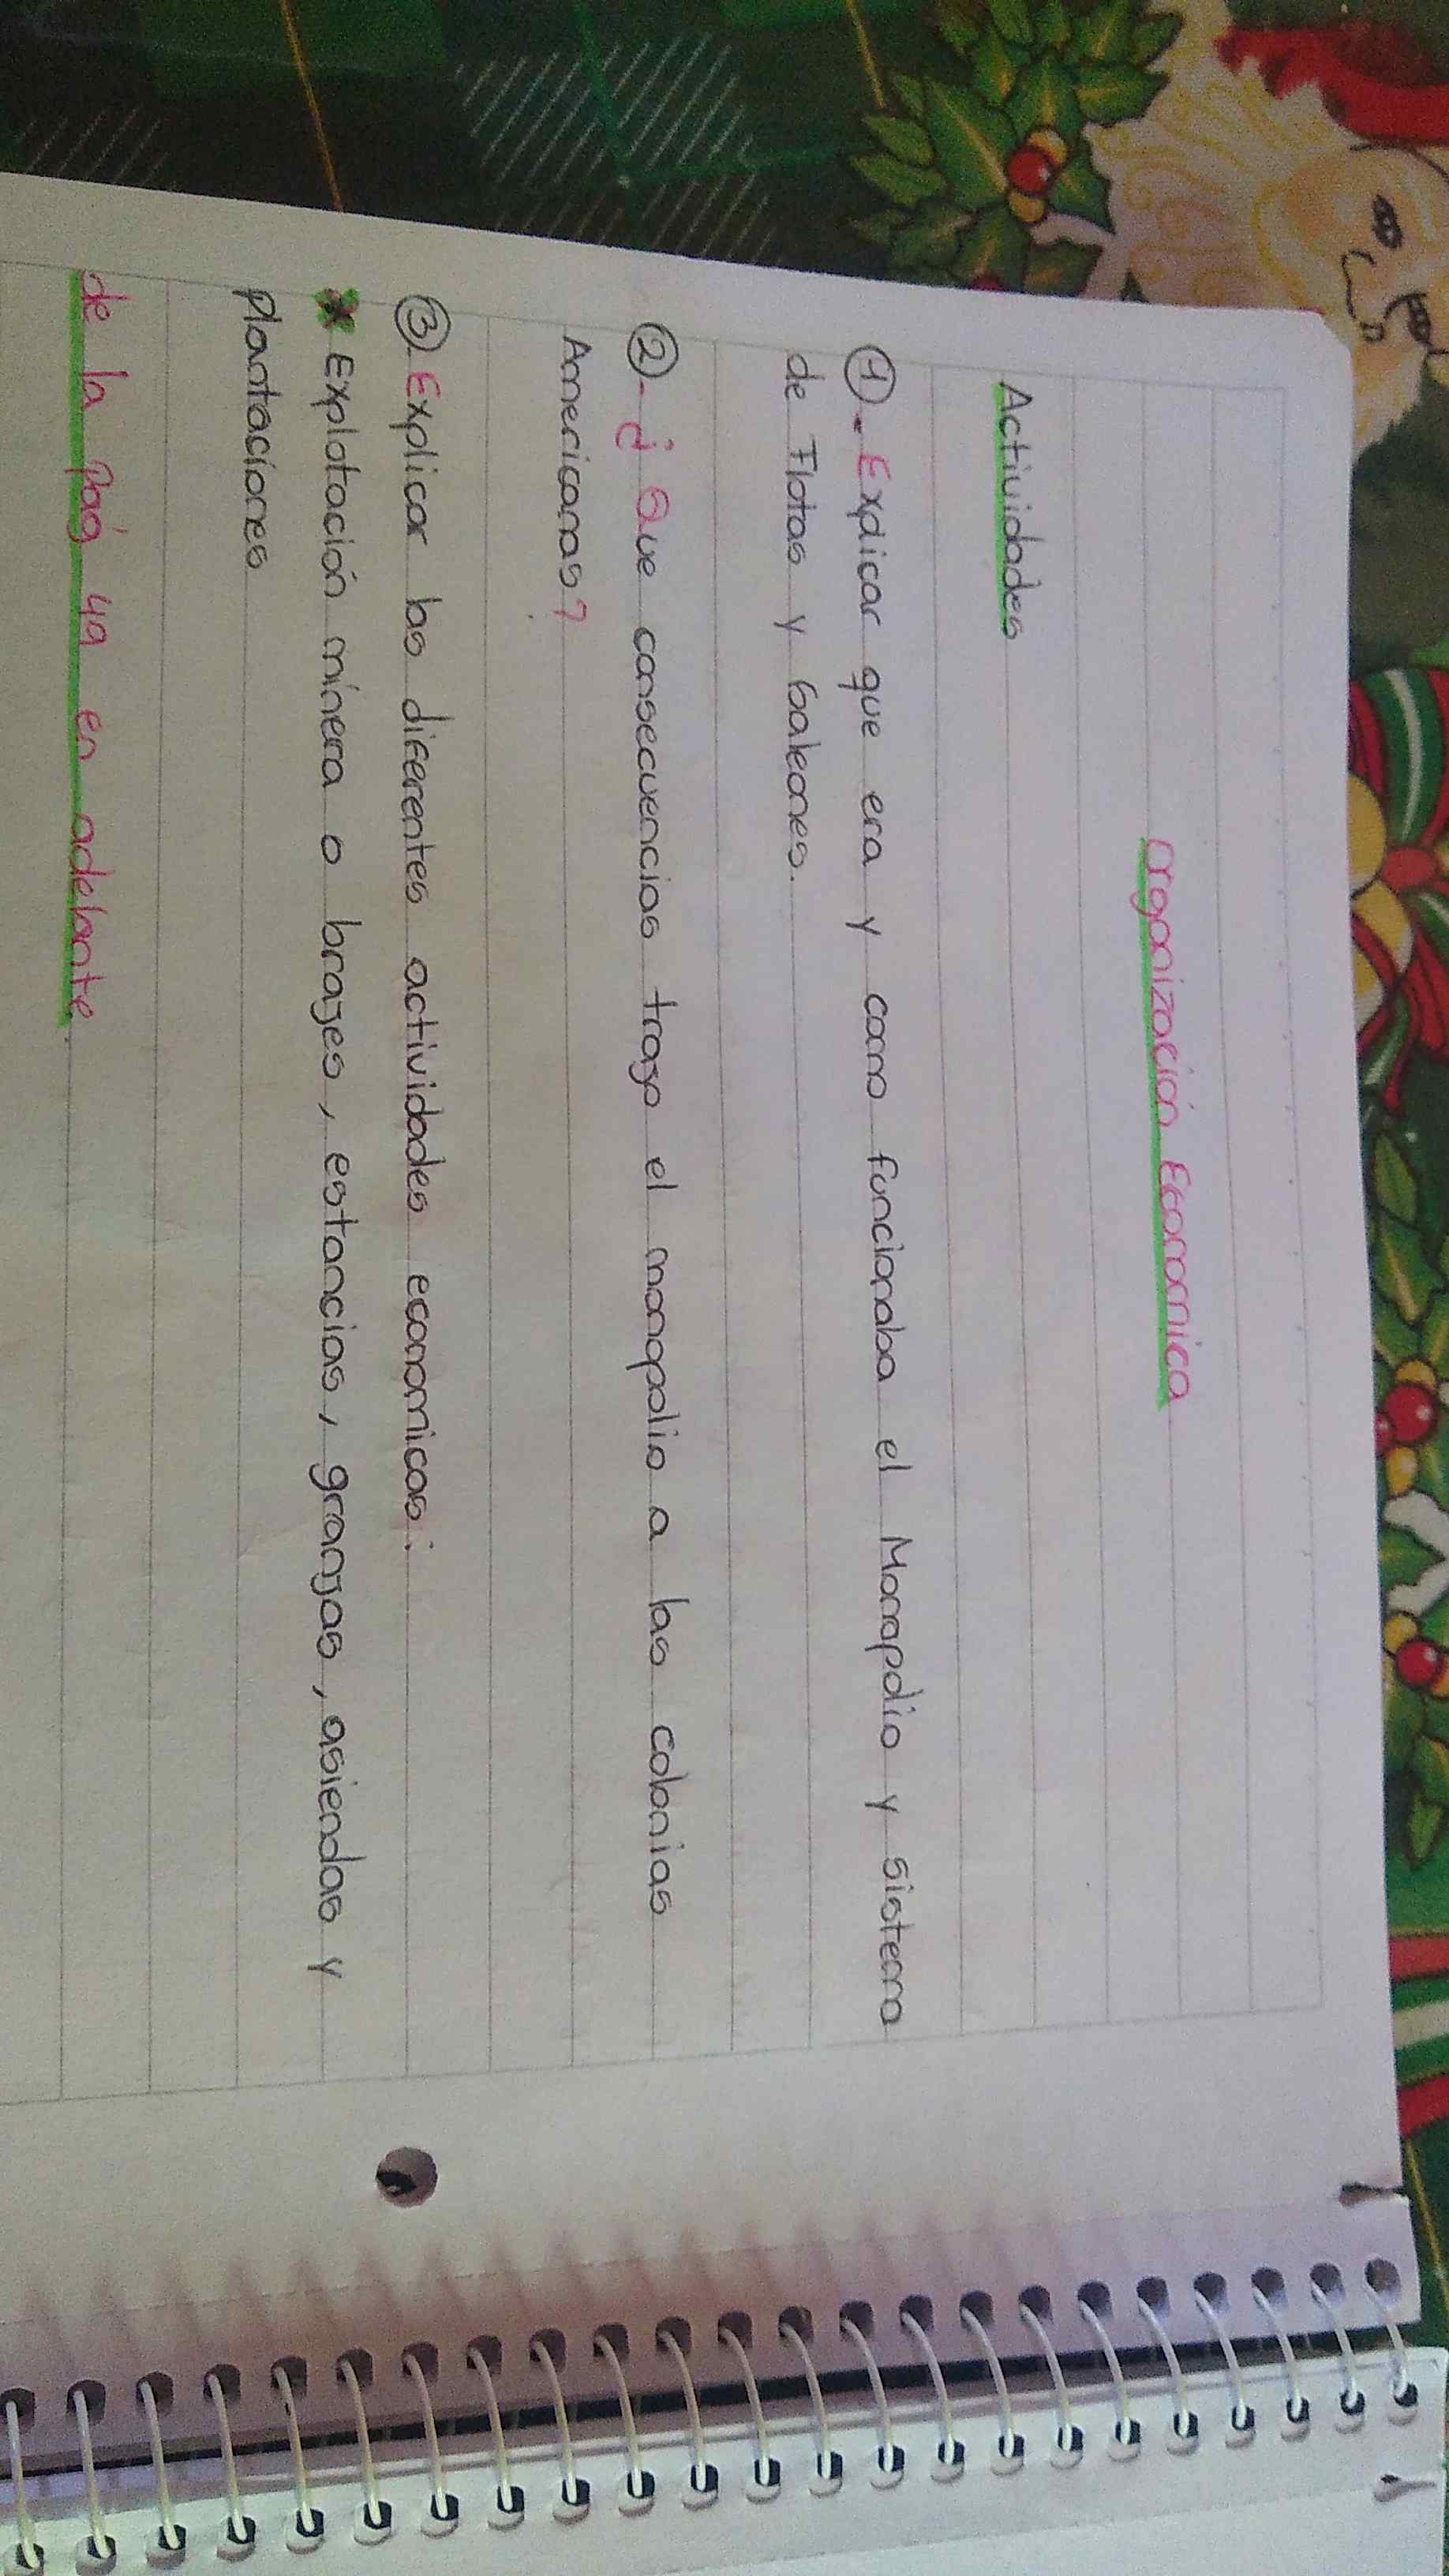 Organización Economica
Actividades
①- Explicar que era y como funcionaba el Monopolio y sistema
de Flotas y Galeones.
②- ¿ Que consecuencias trajo el monopolio a las colonias
Americanas?
③. Explicar las diferentes actividades economicas:
* Explotación minera o brajes, estancias, granjas, asiendas y
plantaciones
de la Pág 49 en adelante.